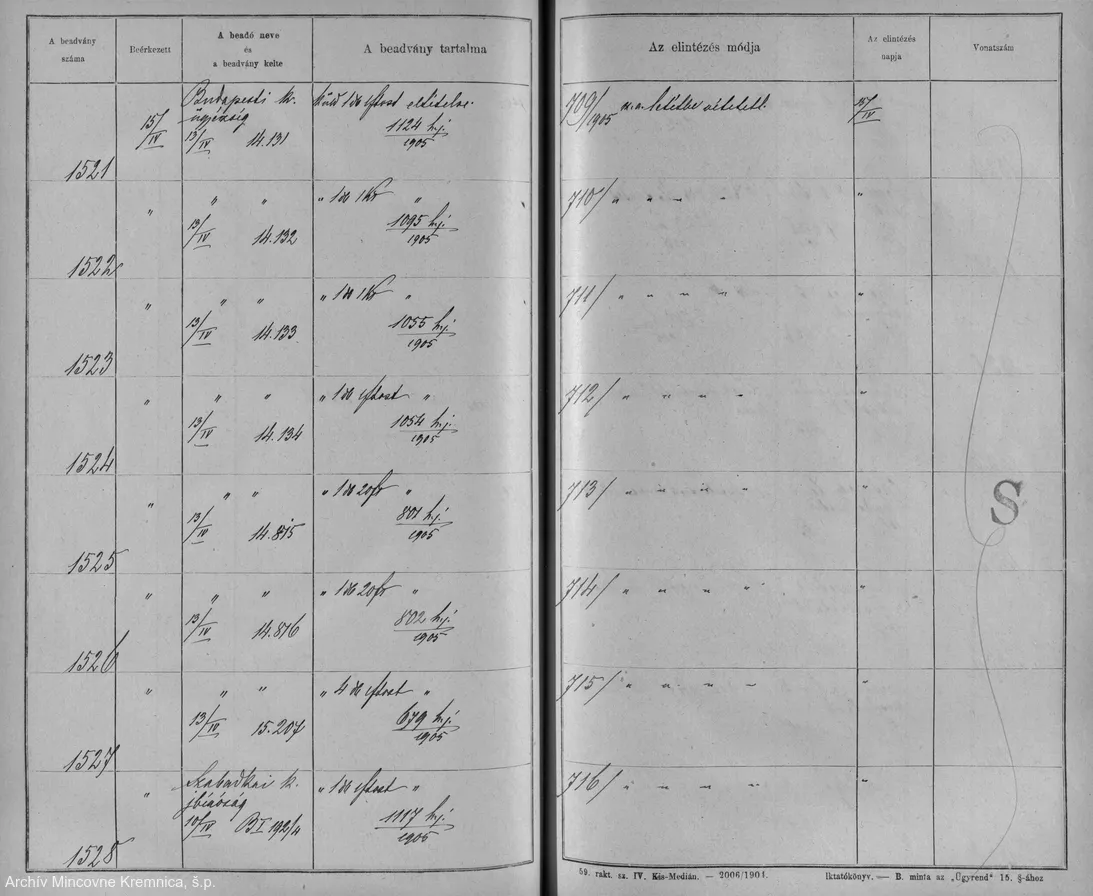 A beadvány száma
Beérkezett
A beadó neve és a beadvány kelte
A beadvány tartalma
Az elintézés módja
Az elintézés napja
Vonatszám
1521
15/IV
Budapesti k. ügyészség
13/IV 14.131
küld 1 db
1124 hj.
1905
709/1905
letétbe vétetett.
15/IV
1522
" " "
13/IV 14.132
" 1 db 1 Kr "
1095 hj.
1905
710/ " " " "
"
1523
" " "
13/IV 14.133
" 1 db 1 Kr "
1055 hj.
1905
711/ " " " "
"
1524
" " "
13/IV 14.134
" 1 db "
1054 hj.
1905
712/ " " " "
"
1525
" " "
13/IV 14.815
" 1 db 20 fr "
801 hj.
1905
713/ " " " "
"
1526
" " "
13/IV 14.816
" 1 db 20 fr "
802 hj.
1905
714/ " " " "
"
1527
" " "
13/IV 15.207
" 4 db "
679 hj.
1905
715/ " " " "
"
1528
"
Szabadkai k. jbíróság
10/IV B I 192/4
" 1 db "
1117 hj.
1905
716/ " " " "
"
S
59. rakt. sz. IV. Kis-Medián. — 2006/1904.
Iktatókönyv. — B. minta az „Ügyrend" 15. §-ához
Archív Mincovne Kremnica, š.p.